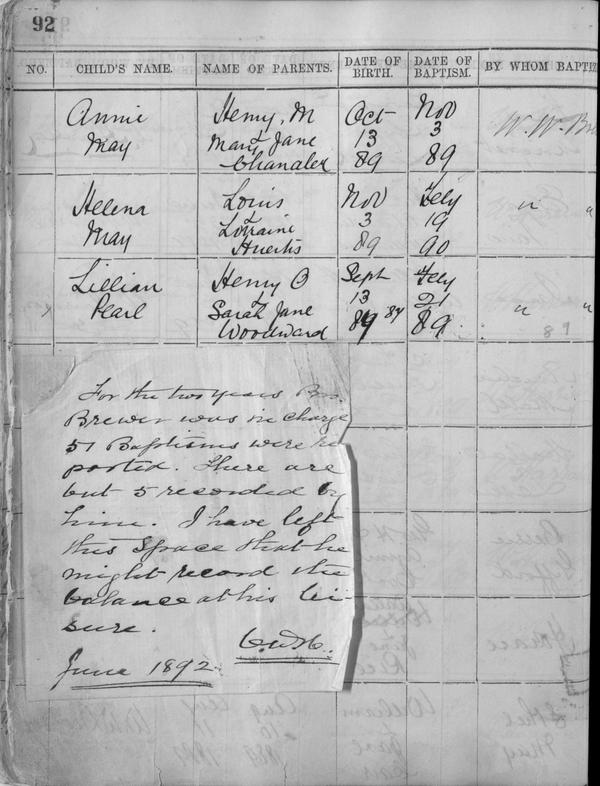 92
NO. CHILD'S NAME. NAME OF PARENTS. DATE OF BIRTH. DATE OF BAPTISM. BY WHOM BAPTIZ
Annie Henry, M Oct Nov
May Mary Jane 13 3 W. W. Bre
Chandler 89 89
Helena Louis Nov Feby
May Lorraine 3 19 " "
Huertis 89 90
Lillian Henry B Sept Feby
Pearl Sarah Jane 13 21 " "
Woodward 89 87 89 89
For the two years Bro.
Brewer was in charge
51 Baptisms were re
ported. There are
but 5 recorded by
him. I have left
this space that he
might record the
balance at his lei-
sure.
June 1892